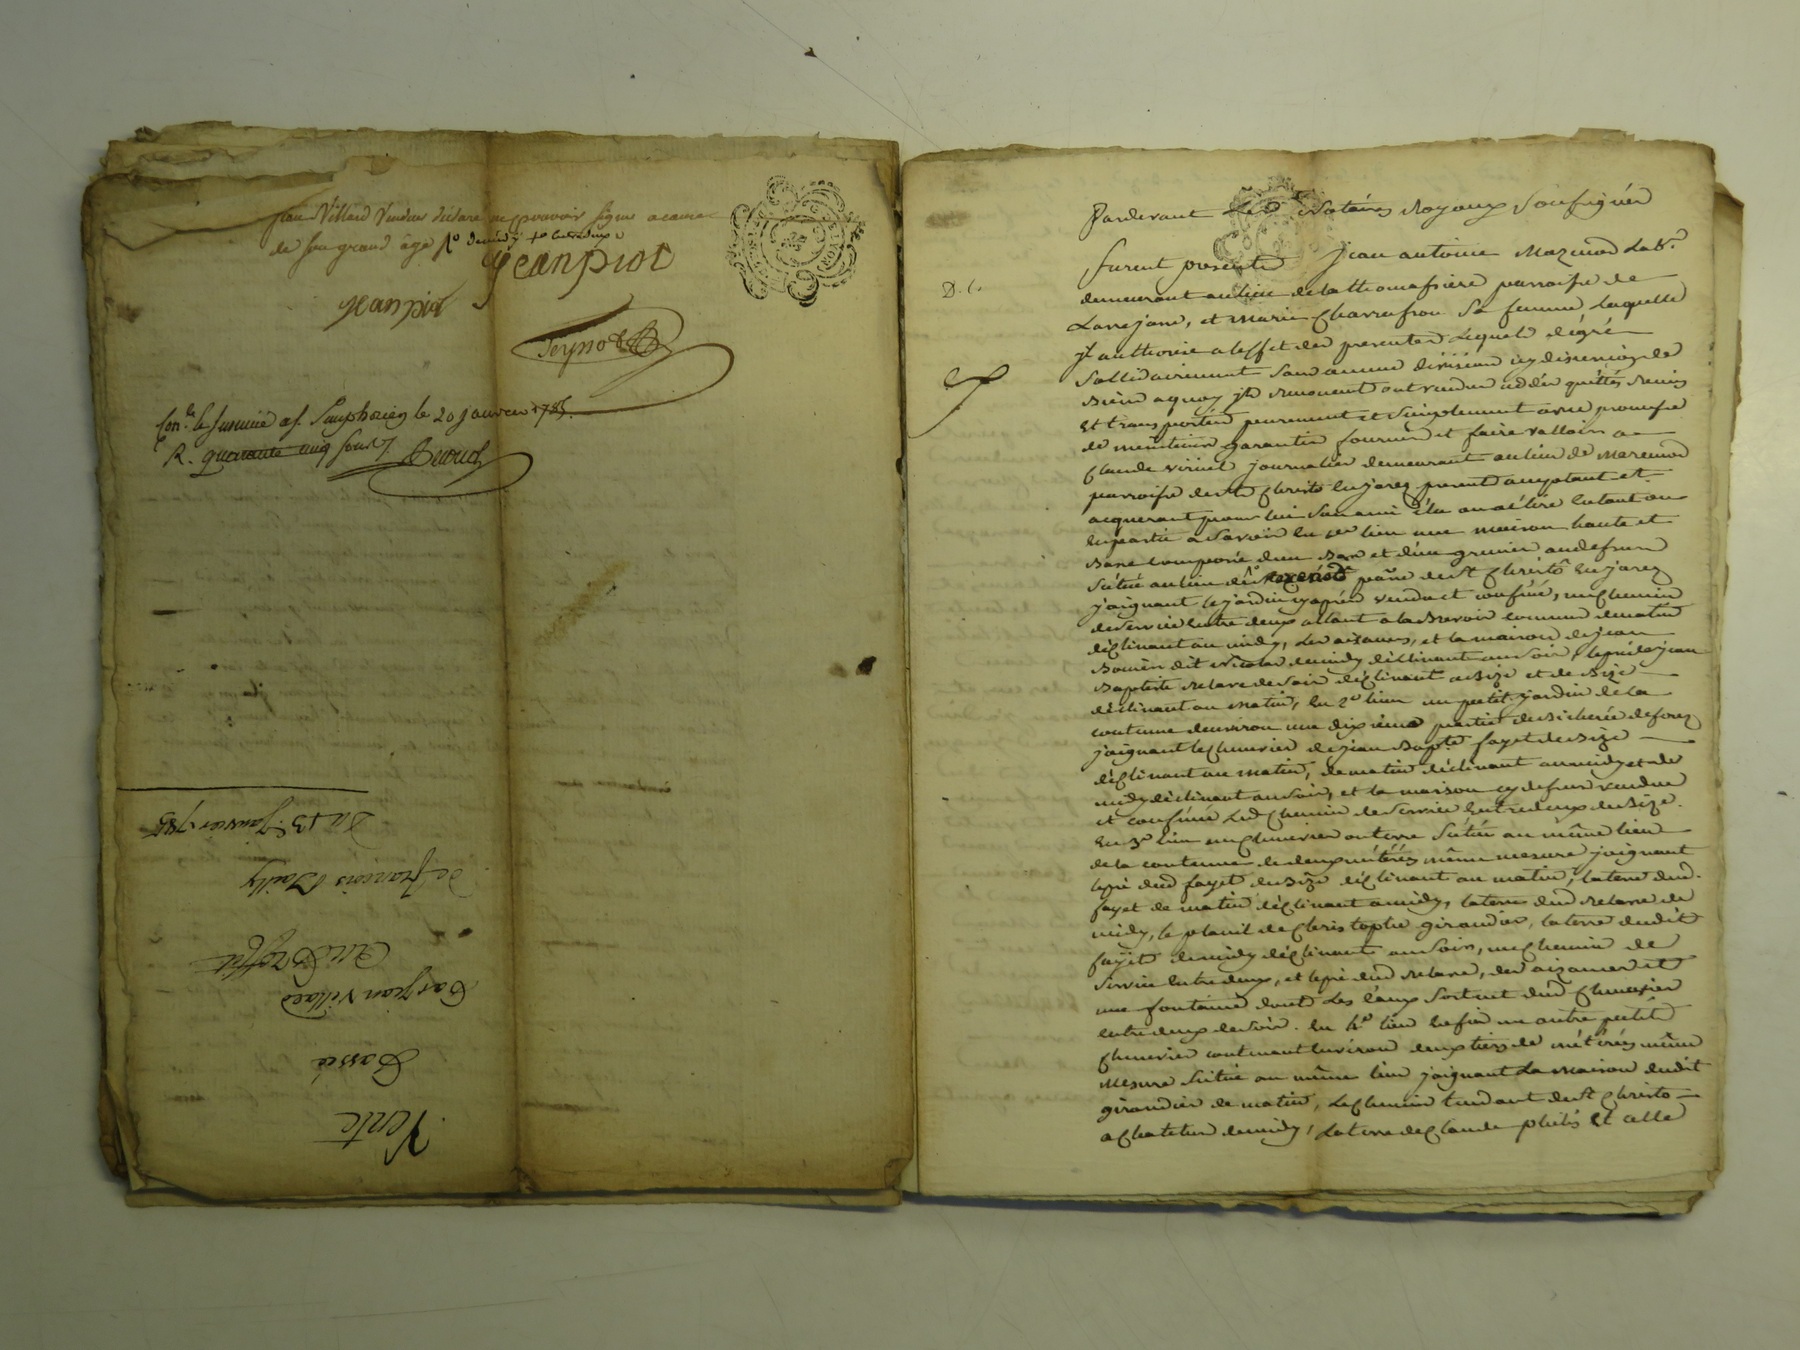 jean Villard Vendeur déclaré ne pouvoir signer a cause
de son grand âge
jean piot
jean piot
Con.lé le susmise a s. simphorien le 20 janvier 1785.
R. quarante cinq sous
Vente
Passée
Par jean Villard
Du 13e. Janvier 1785
Pardevant Les Notaires Royaux Soussignés
furent presents jean antoine Mazenod Labr.
demeurant au lieu de la thomassiere parroisse de
Larajasse, et Marie Charrassion Sa femme laquelle
jl authorise a leffet des presentes Lequels de gré
Sollidairement Sans aucune division cy discution de
Biens a quoy jls renoncent ont vendu cedés quittés remis
Et transportés purement et simplement avec promesse
de maintenir garantir fournir et faire valloir a
Claude virieut journalier demeurant au lieu de Marenod
parroisse de st Christo en jarez present acceptant et
acquerant pour lui Son ami élu ou a élire en tout ou
en partie a Savoir En 1er lieu une maison haute et
Basse composée d'un Bas et d'un grenier au dessus
Sçitué au lieu de parsse de st Christo En jarez
joignant le jardin cy après vendu et confiné, un chemin
de Service entre deux allant a la Brevoir commun de matin
déclinant au midy, les aizances, et la maison de jean
dit Nicolas de midy déclinant au Soir, le pré de jean
Baptiste Relave de Soir déclinant a Bize et de Bize
déclinant au Matin, En 2e lieu un petit jardin de la
contenue denviron une dixième partie de Bicherée de forez
joignant le chenevier de jean Bapte fayet de Bize
déclinant au matin, de matin déclinant au midy et de
midy déclinant au Soir, et la maison cy dessus vendue
et confinée Led Chemin de Service Entre deux de Bize.
En 3e lieu un chenevier ou terre Scitué au même lieu
de la contenue de deux métérés même mesure joignant
le pré dud fayet de Bize déclinant au matin, la terre dud.
fayet de matin déclinant a midy, la terre dud Relave de
midy, le planil de Christophe girandier, la terre dudit
fayet de midy déclinant au Soir, un Chemin de
Service Entre deux, et le pré dud Relave, des aizances et
une fontaine dont Les Eaux Sortent dud Chenevier
entre deux de Soir. En 4e lieu Enfin un autre petit
Chenevier contenant Environ deux tiers de métérés même
Mesure Scitué au même lieu joignant La Maison dudit
girandier de matin, Le Chemin tendant de st Christo
a Chatelus de midy, La terre de Claude philis Et celle